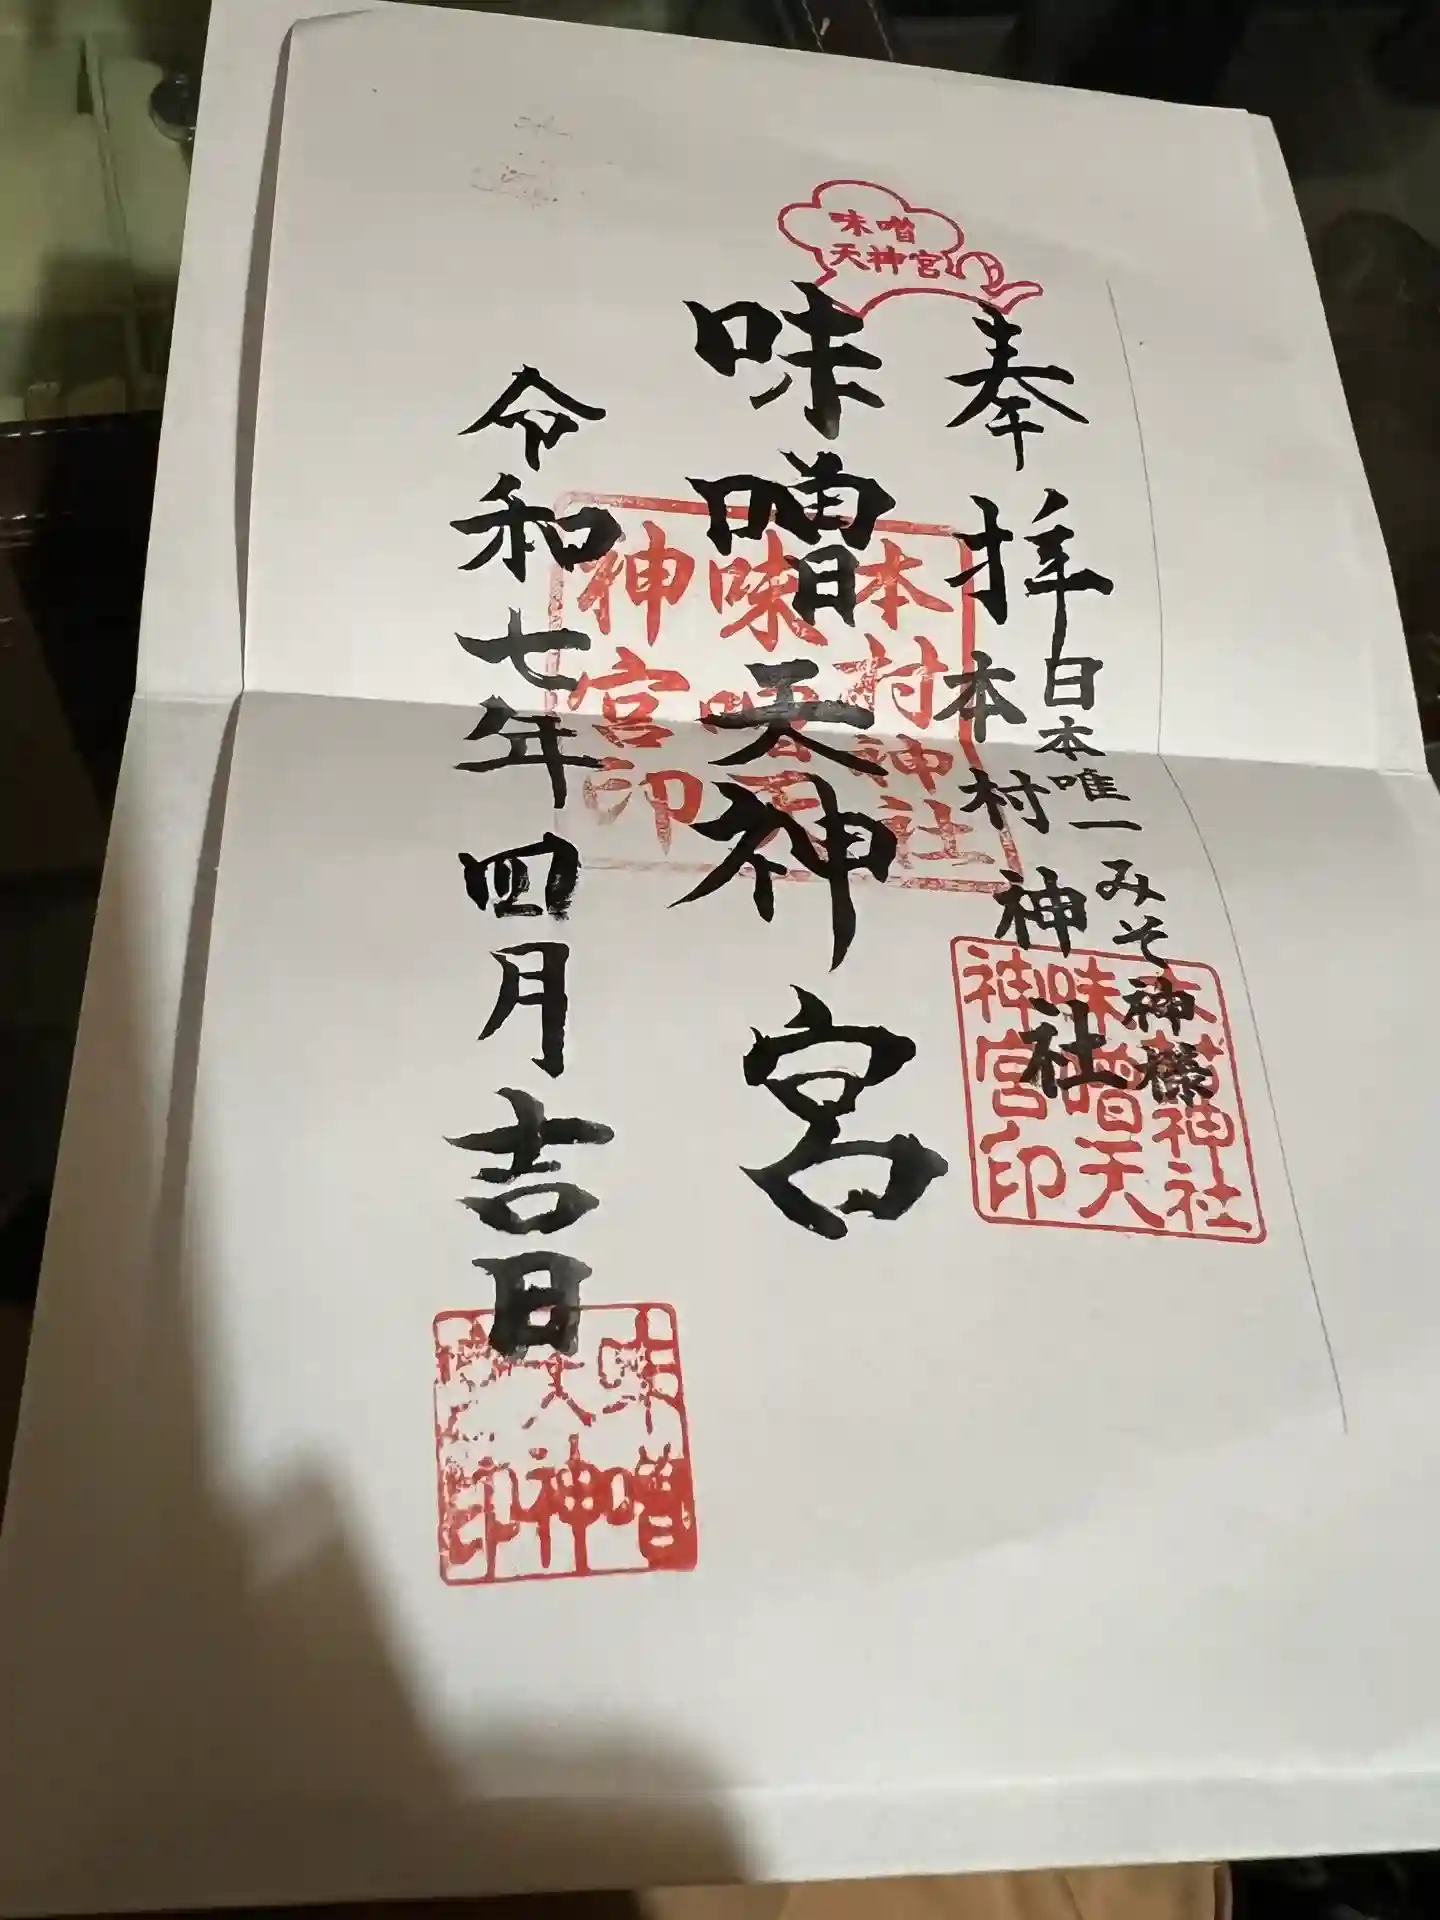 味噌
天神宮
奉拝
日本唯一みそ神様
本村神社
味噌天神宮
令和七年四月吉日
本村神社
味噌天
神宮印
本村神社
味噌天
神宮印
味噌
天神
印